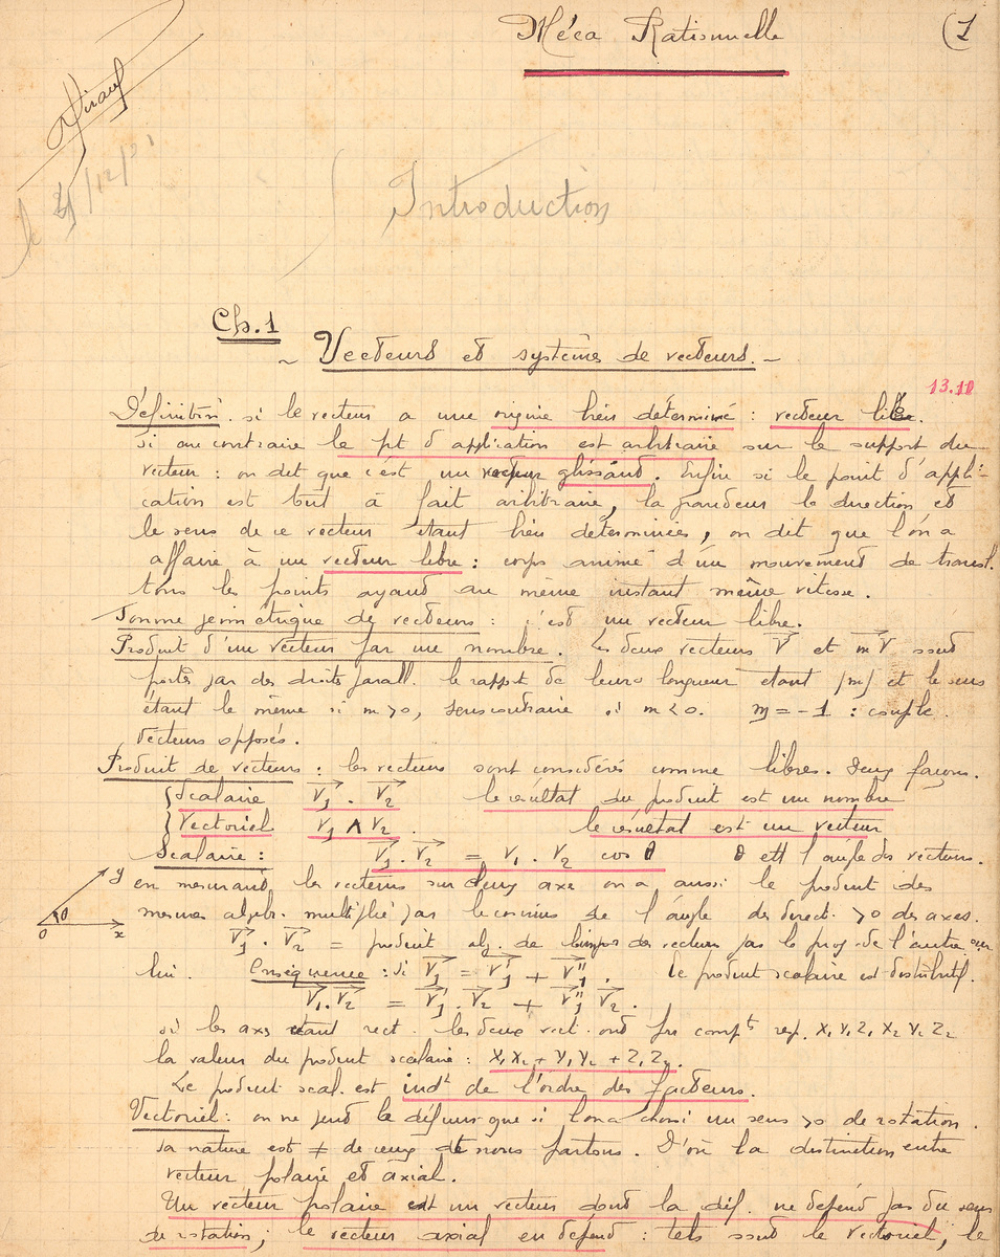 Méca Rationnelle
(1
le 21/12/
Introduction
Ch. 1
~ Vecteurs et systèmes de vecteurs. ~
13.11
Définition. si le vecteur a une origine bien déterminé : vecteur lié.
si au contraire le pt d'application est arbitraire sur le support du
vecteur : on dit que c'est un vecteur glissant. Enfin si le point d'appli-
cation est tout à fait arbitraire, la grandeur la direction et
le sens de ce vecteur étant bien déterminés, on dit que l'on a
affaire à un vecteur libre : corps animé d'un mouvement de transl.
tous les points ayant au même instant même vitesse.
Somme géométrique de vecteurs : c'est un vecteur libre.
Produit d'un vecteur par un nombre. Les deux vecteurs V et mV sont
portés par des droites parall. le rapp.t de leurs longueurs étant |m| et le sens
étant le même si m>0, sens contraire si m<0. m = -1 : couple
vecteurs opposés.
Produit de vecteurs : les vecteurs sont considérés comme libres. Deux façons.
{ Scalaire V1 . V2 le résultat du produit est un nombre
} Vectoriel V1 ∧ V2 . le résultat est un vecteur
Scalaire : V1 . V2 = V1 . V2 cos θ θ est l'angle des vecteurs.
en mesurant les vecteurs sur deux axes on a aussi le produit des
mesures algébr. multiplié par le cosinus de l'angle des direct. >0 des axes.
y
θ
O x
V1 . V2 = produit alg. de l'un des vecteurs par la proj. de l'autre sur
lui. Conséquence : si V1 = V'1 + V''1 . Le produit scalaire est distributif.
V1.V2 = V'1.V2 + V''1 V2.
si les axes étant rect. les deux vect. ont pr compts resp. X1 Y1 Z1 X2 Y2 Z2
la valeur du produit scalaire : X1X2 + Y1Y2 + Z1Z2.
Le produit scal. est indt de l'ordre des facteurs.
Vectoriel : on ne peut le définir que si l'on a choisi un sens >0 de rotation.
sa nature est ≠ de ceux dt nous partons. D'où la distinction entre
vecteur polaire et axial.
Un vecteur polaire est un vecteur dont la déf. ne dépend pas du sens
de rotation ; le vecteur axial en dépend : tels sont le vectoriel, le